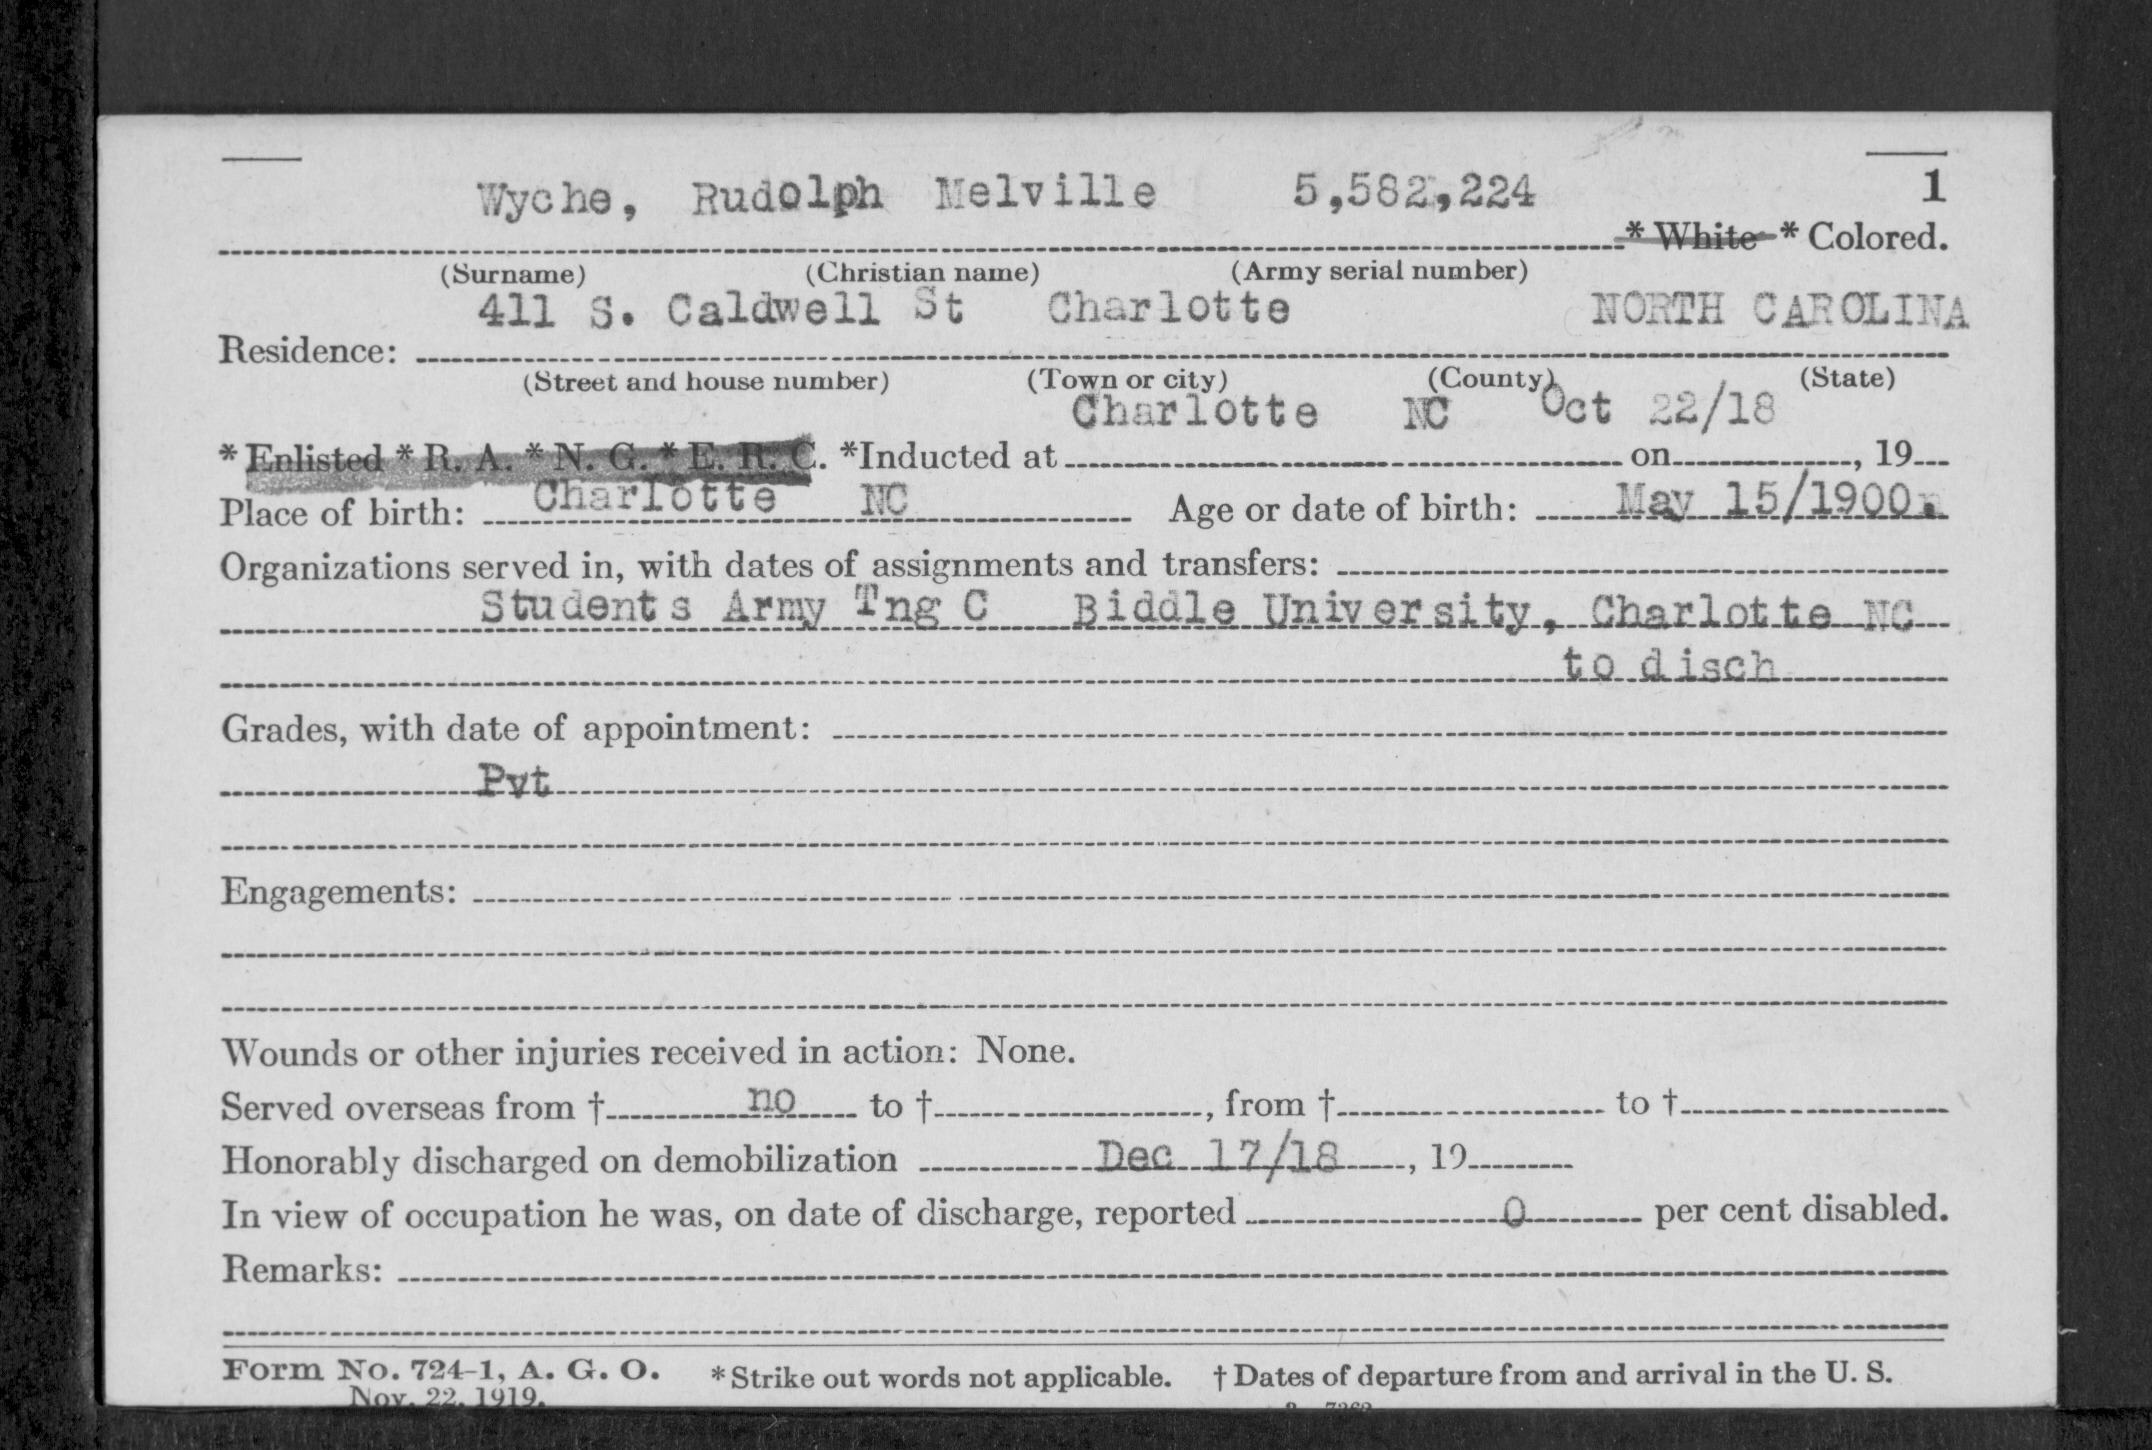 Wyche, Rudolph Melville 5,582,224 1
* White * Colored.
(Surname) (Christian name) (Army serial number)
411 S. Caldwell St Charlotte NORTH CAROLINA
Residence:
(Street and house number) (Town or city) (County) (State)
Charlotte NC Oct 22/18
* Enlisted * R. A. * N. G. * E. R. C. *Inducted at on , 19
Place of birth: Charlotte NC Age or date of birth: May 15/1900.
Organizations served in, with dates of assignments and transfers:
Students Army Tng C Biddle University, Charlotte NC
to disch
Grades, with date of appointment:
Pvt
Engagements:
Wounds or other injuries received in action: None.
Served overseas from † no to † , from † to †
Honorably discharged on demobilization Dec 17/18 , 19
In view of occupation he was, on date of discharge, reported 0 per cent disabled.
Remarks:
Form No. 724-1, A. G. O. * Strike out words not applicable. † Dates of departure from and arrival in the U. S.
Nov. 22, 1919.